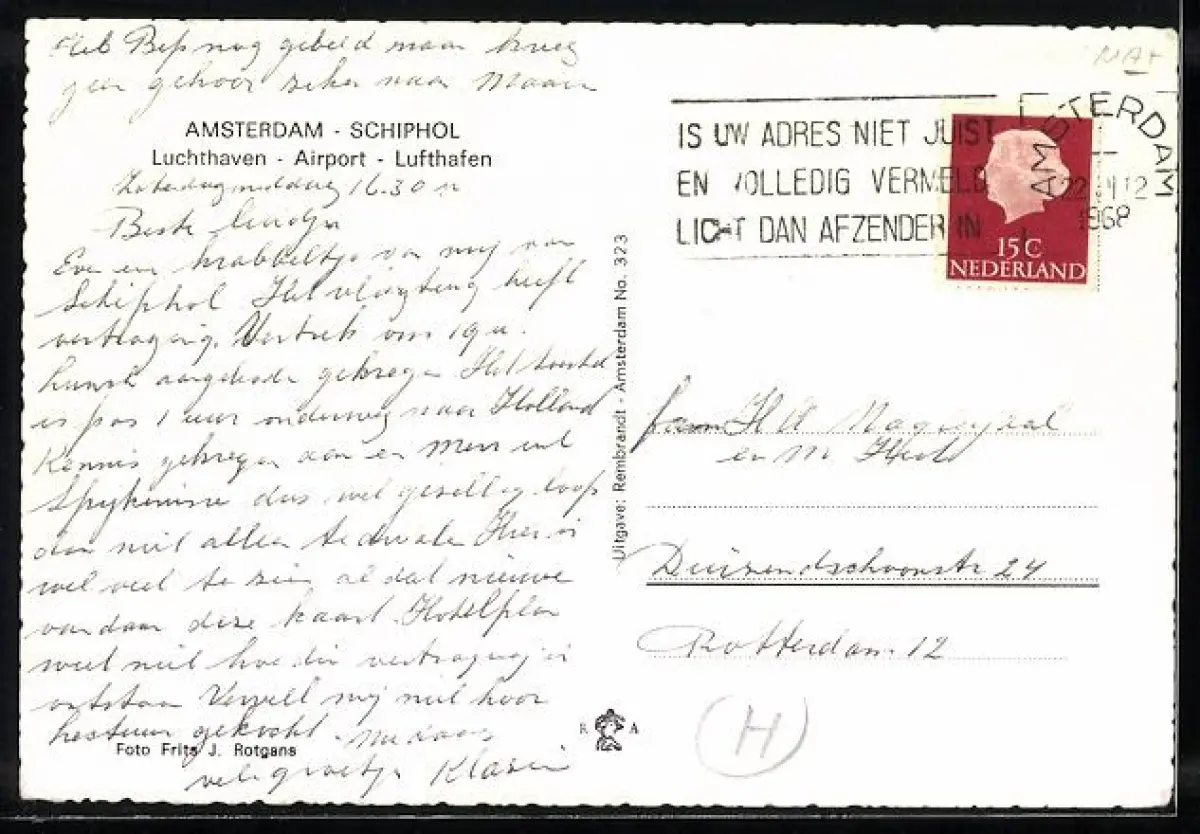 Heb Bep nog gebeld maar kreeg
geen gehoor zeker naar
AMSTERDAM - SCHIPHOL
Luchthaven - Airport - Lufthafen
Zaterdagmiddag 16.30 u
Beste
Even een krabbeltje van mij van
Schiphol Het vliegtuig heeft
vertraging. Vertrek om 19 u.
aangeboden gekregen Het toestel
is pas 1 uur onderweg naar Holland
Kennis gekregen aan een Men uit
Spijkenisse dus wel gezellig loop
dan niet alleen te dwalen Hier is
wel veel te zien al dat nieuwe
vandaar deze kaart. Hotelplan
weet niet hoe die vertraging is
ontstaan Verveel mij niet hoor
gekocht.
Foto Frits J. Rotgans
vele groetjes
Uitgave: Rembrandt - Amsterdam No. 323
R A
IS UW ADRES NIET JUIST
EN VOLLEDIG VERMELD
LICHT DAN AFZENDER IN
AMSTERDAM
1968
15 C
NEDERLAND
Fam H
en m
Duizendschoonstr 24
Rotterdam 12
H